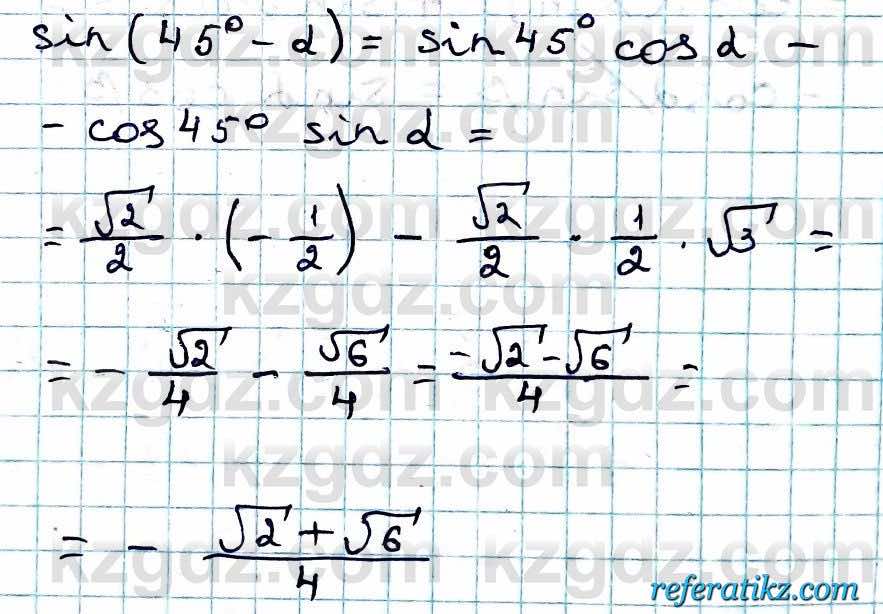 sin(45° - α) = sin 45° cos α -
- cos 45° sin α =
= √2/2 · (- 1/2) - √2/2 · 1/2 · √3 =
= - √2/4 - √6/4 = (-√2 - √6)/4 =
= - (√2 + √6)/4
kzgdz.com
referatikz.com